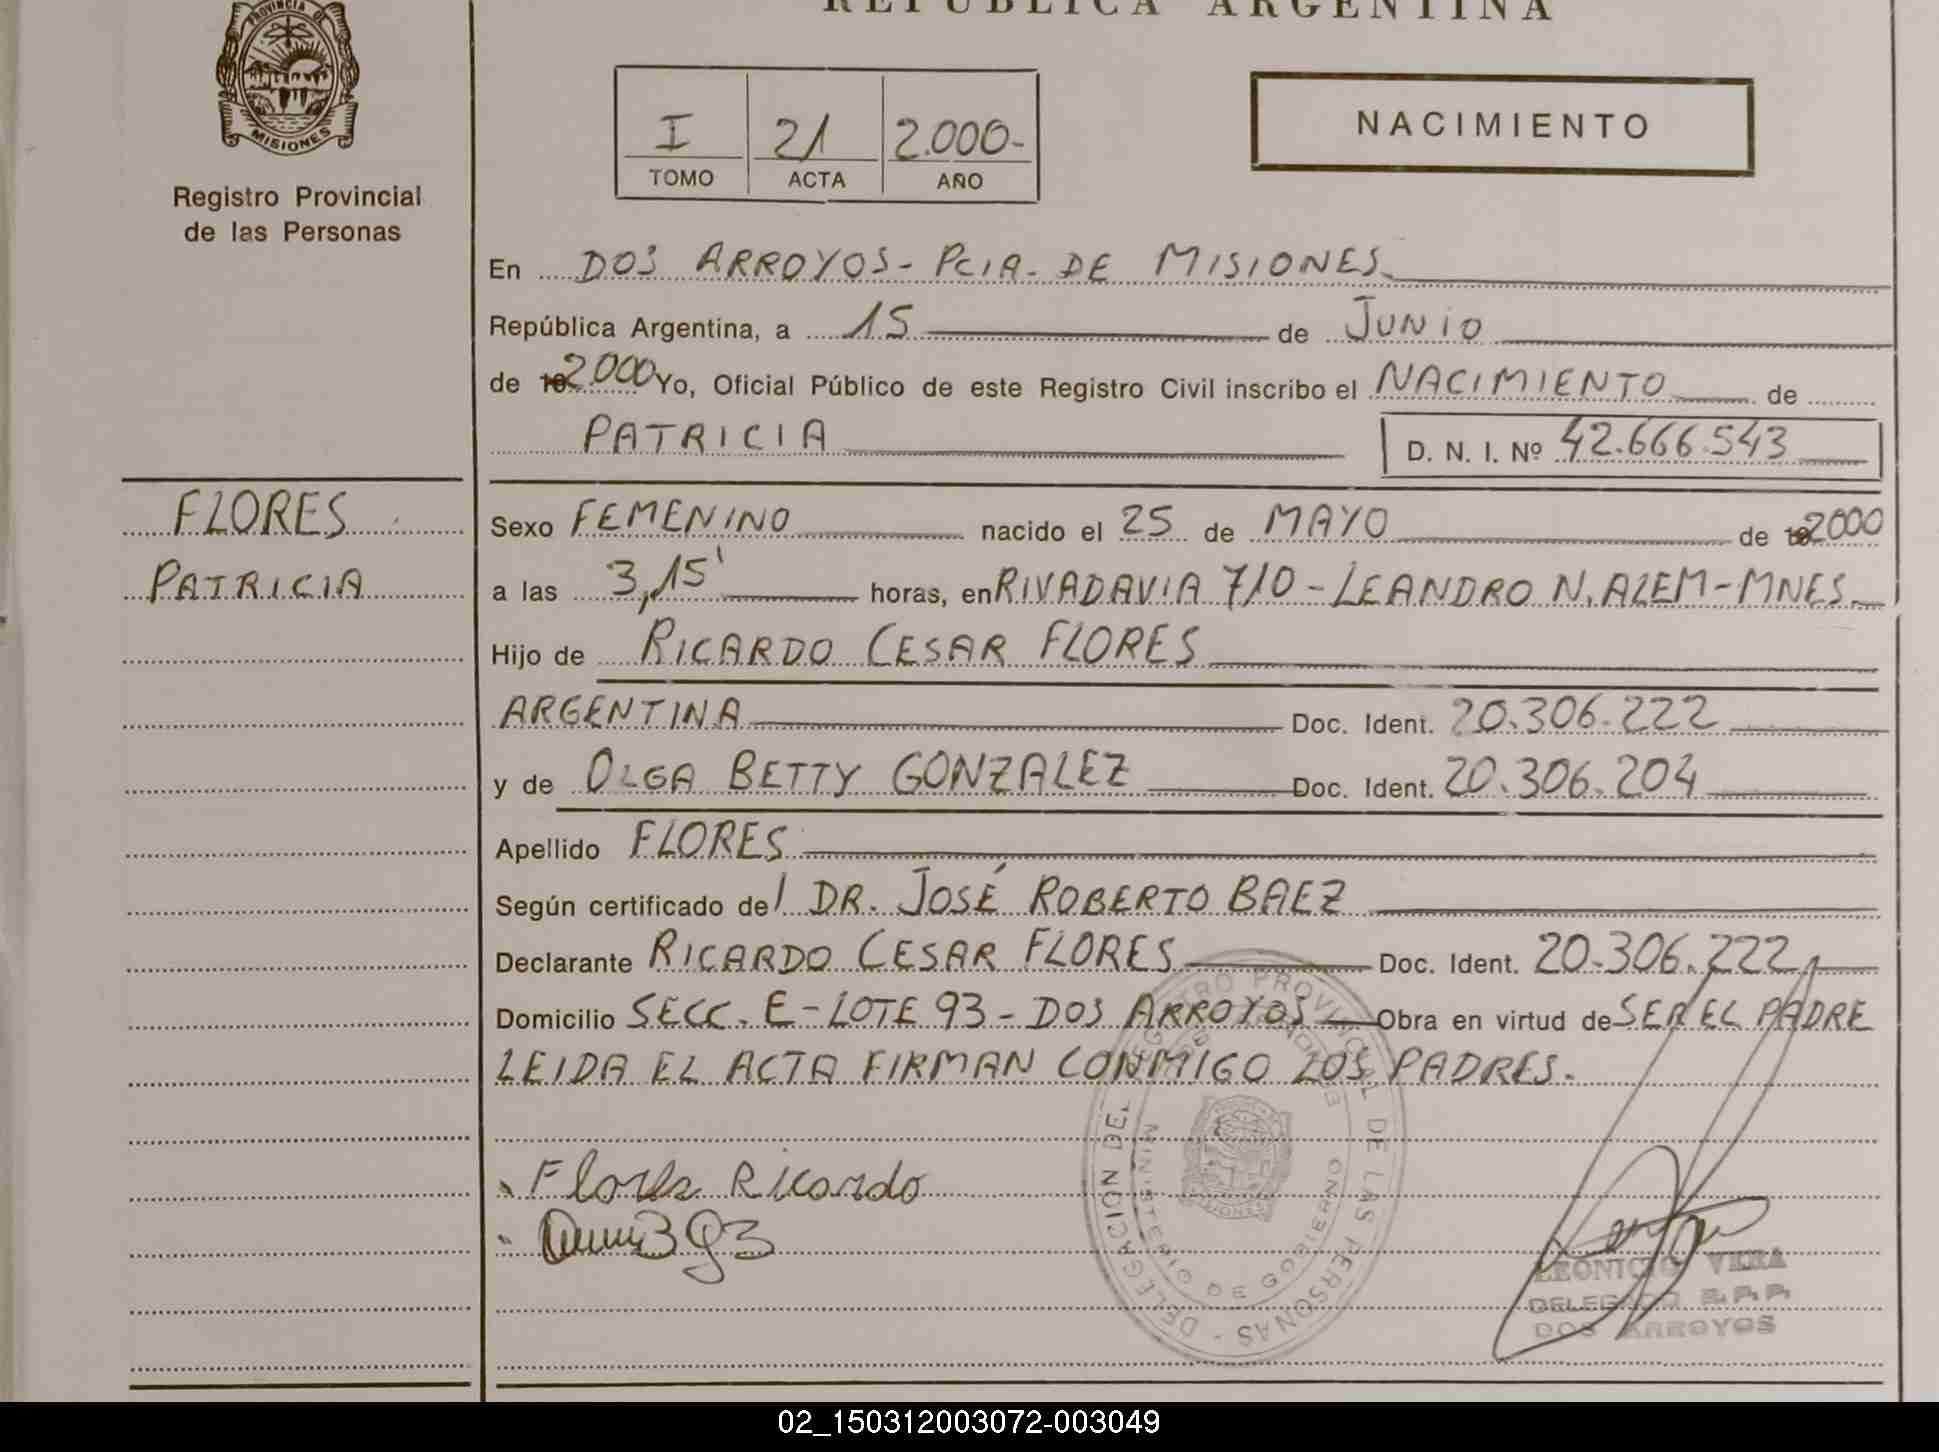 REPUBLICA ARGENTINA
PROVINCIA DE
MISIONES
Registro Provincial
de las Personas
I 21 2.000-
TOMO ACTA AÑO
NACIMIENTO
En DOS ARROYOS - PCIA. DE MISIONES.
República Argentina, a 15 de JUNIO
de 19 2000 Yo, Oficial Público de este Registro Civil inscribo el NACIMIENTO de
PATRICIA D. N. I. Nº 42.666.543
FLORES
PATRICIA
Sexo FEMENINO nacido el 25 de MAYO de 19 2000
a las 3,15' horas, en RIVADAVIA 710 - LEANDRO N. ALEM - MNES.
Hijo de RICARDO CESAR FLORES
ARGENTINA Doc. Ident. 20.306.222
y de OLGA BETTY GONZALEZ Doc. Ident. 20.306.204
Apellido FLORES
Según certificado del DR. JOSÉ ROBERTO BAEZ
Declarante RICARDO CESAR FLORES Doc. Ident. 20.306.222
Domicilio SECC. E - LOTE 93 - DOS ARROYOS Obra en virtud de SER EL PADRE
LEIDA EL ACTA FIRMAN CONMIGO LOS PADRES.
Flores Ricardo
DELEGACION DEL REGISTRO PROVINCIAL DE LAS PERSONAS
MINISTERIO DE GOBIERNO
LEONICIO VERA
DELEGADO R.P.P.
DOS ARROYOS
02_150312003072-003049